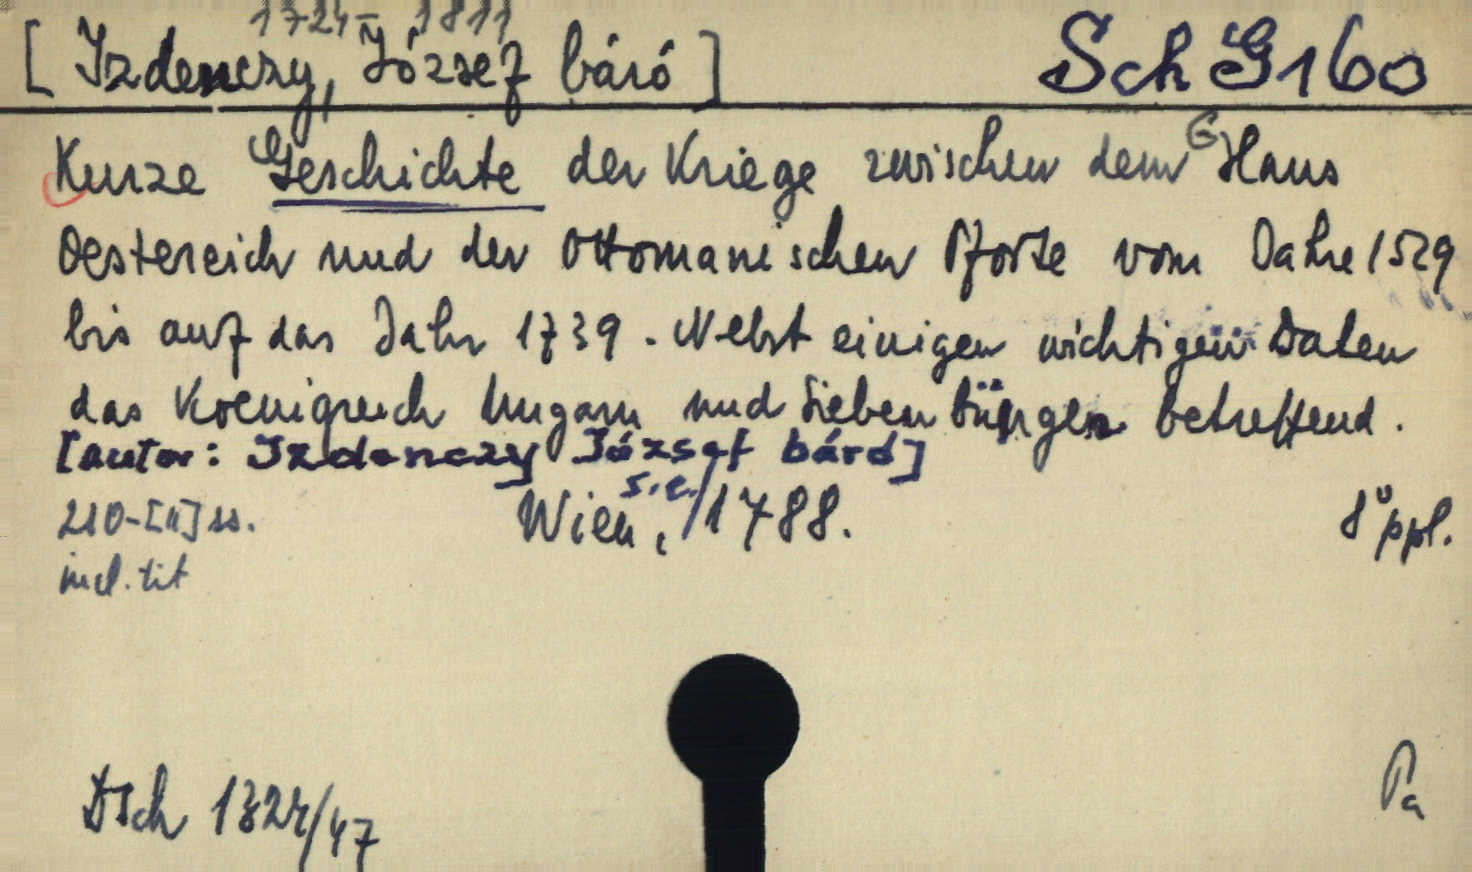 1724–1811
[Izdenczy, József báró] Sch G 160
Kurze Geschichte der Kriege zwischen dem G Haus
Oestereich und der Ottomanischen Pforte vom Jahre 1529
bis auf das Jahr 1739. Nebst einigen wichtigen Daten
das Koenigreich Ungarn und Siebenbürgen betreffend.
[autor: Izdenczy József báró]
210-[11] ss. Wien, s.e./1788. 8° ppl.
incl. tit
Dsch /47 Pa